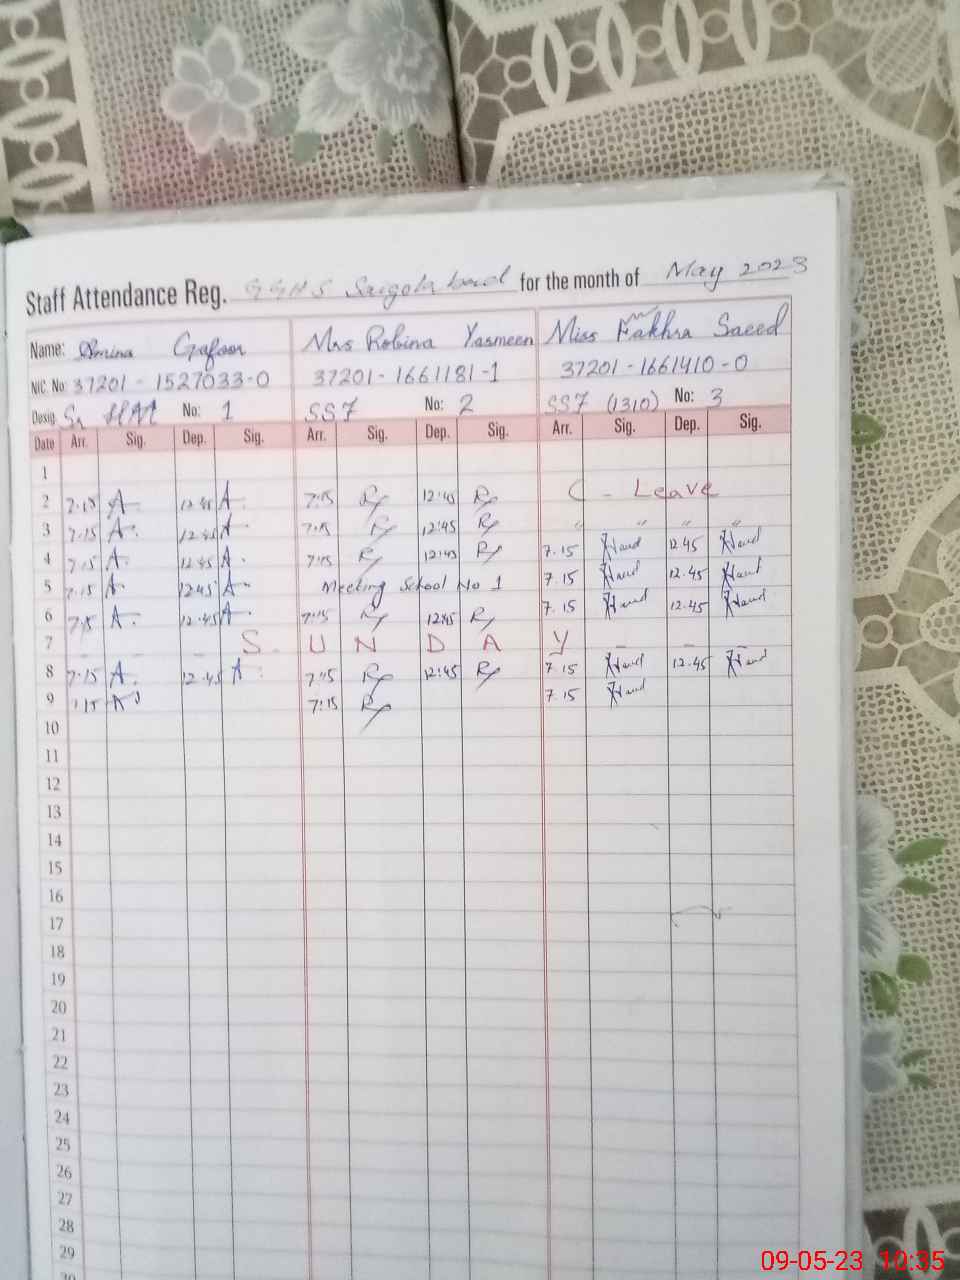 Staff Attendance Reg. GGHS Saigolabad for the month of May 2023
Name: Amina Gafoor Mrs Robina Yasmeen Miss Fakhra Saeed
NIC. No: 37201-1527033-0 37201-1661181-1 37201-1661410-0
Desig. Sr HM No: 1 SS7 No: 2 SS7 (1310) No: 3
Date Arr. Sig. Dep. Sig. Arr. Sig. Dep. Sig. Arr. Sig. Dep. Sig.
1
2 7.15 A 12.45 A 7:15 Ry 12:45 Ry C - Leave
3 7.15 A 12.45 A 7:15 Ry 12:45 Ry " " " "
4 7.15 A 12.45 A 7:15 Ry 12:45 Ry 7.15 12.45
5 7.15 A 12.45 A Meeting School No 1 7.15 12.45
6 7.15 A 12.45 A 7:15 Ry 12:45 Ry 7.15 12.45
7 - - - S U N D A Y - - -
8 7.15 A 12.45 A 7:15 Ry 12:45 Ry 7.15 12.45
9 7.15 A 7:15 Ry 7.15
10
11
12
13
14
15
16
17
18
19
20
21
22
23
24
25
26
27
28
29
30
09-05-23 10:35